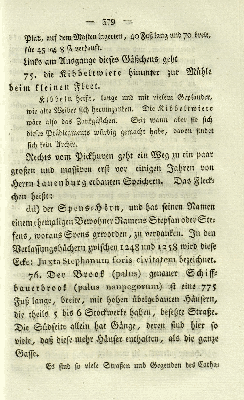 — 379 —
Platz, auf dem Masten lagerten, 40 Fuß lang und 70 breit,
für 45 und 8 ß verkauft.
Links am Ausgange dieses Gäßchens geht
75. die Kibbeltwiete hinunter zur Mühle
beim kleinen Fleet.
Kibbeln heißt, lange und mit vielem Geplauder,
wie alte Weiber sich herumzanken. Die Kibbeltwiete
wäre also das Zankgäßchen. Seit wann aber sie sich
dieses Prädicaments würdig gemacht habe, davon findet
sich kein Archiv.
Rechts vom Pickhuven geht ein Weg zu ein paar
großen und massiven erst vor einigen Jahren von
Herrn Lauenburg erbauten Speichern. Das Fleck-
chen heißt:
dd) der Spenshörn, und hat seinen Namen
einem ehemaligen Bewohner Namens Stephan oder Ste-
fens, woraus Spens geworden, zu verdanken. In den
Verlassungsbüchern zwischen 1248 und 1258 wird diese
Ecke: Juxta Stephanum socii civitatem bezeichnet.
76. Der Brook (palus) genauer Schiff-
bauerbrook (palus naupagorum) ist eine 775
Fuß lange, breite, mit hohen übelgebauten Häusern,
die theils 5 bis 6 Stockwerke haben, besetzte Straße.
Die Südseite allein hat Gänge, deren sind hier so
viele, daß diese mehr Häuser enthalten, als die ganze
Gasse.
Es sind so viele Straßen und Gegenden des Catha-